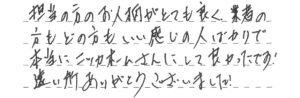 担当の方のお人柄がとても良く、業者の
方もどの方もいい感じの人ばかりで
本当にニッカホームさんにして良かったです!
遠い所ありがとうございました!